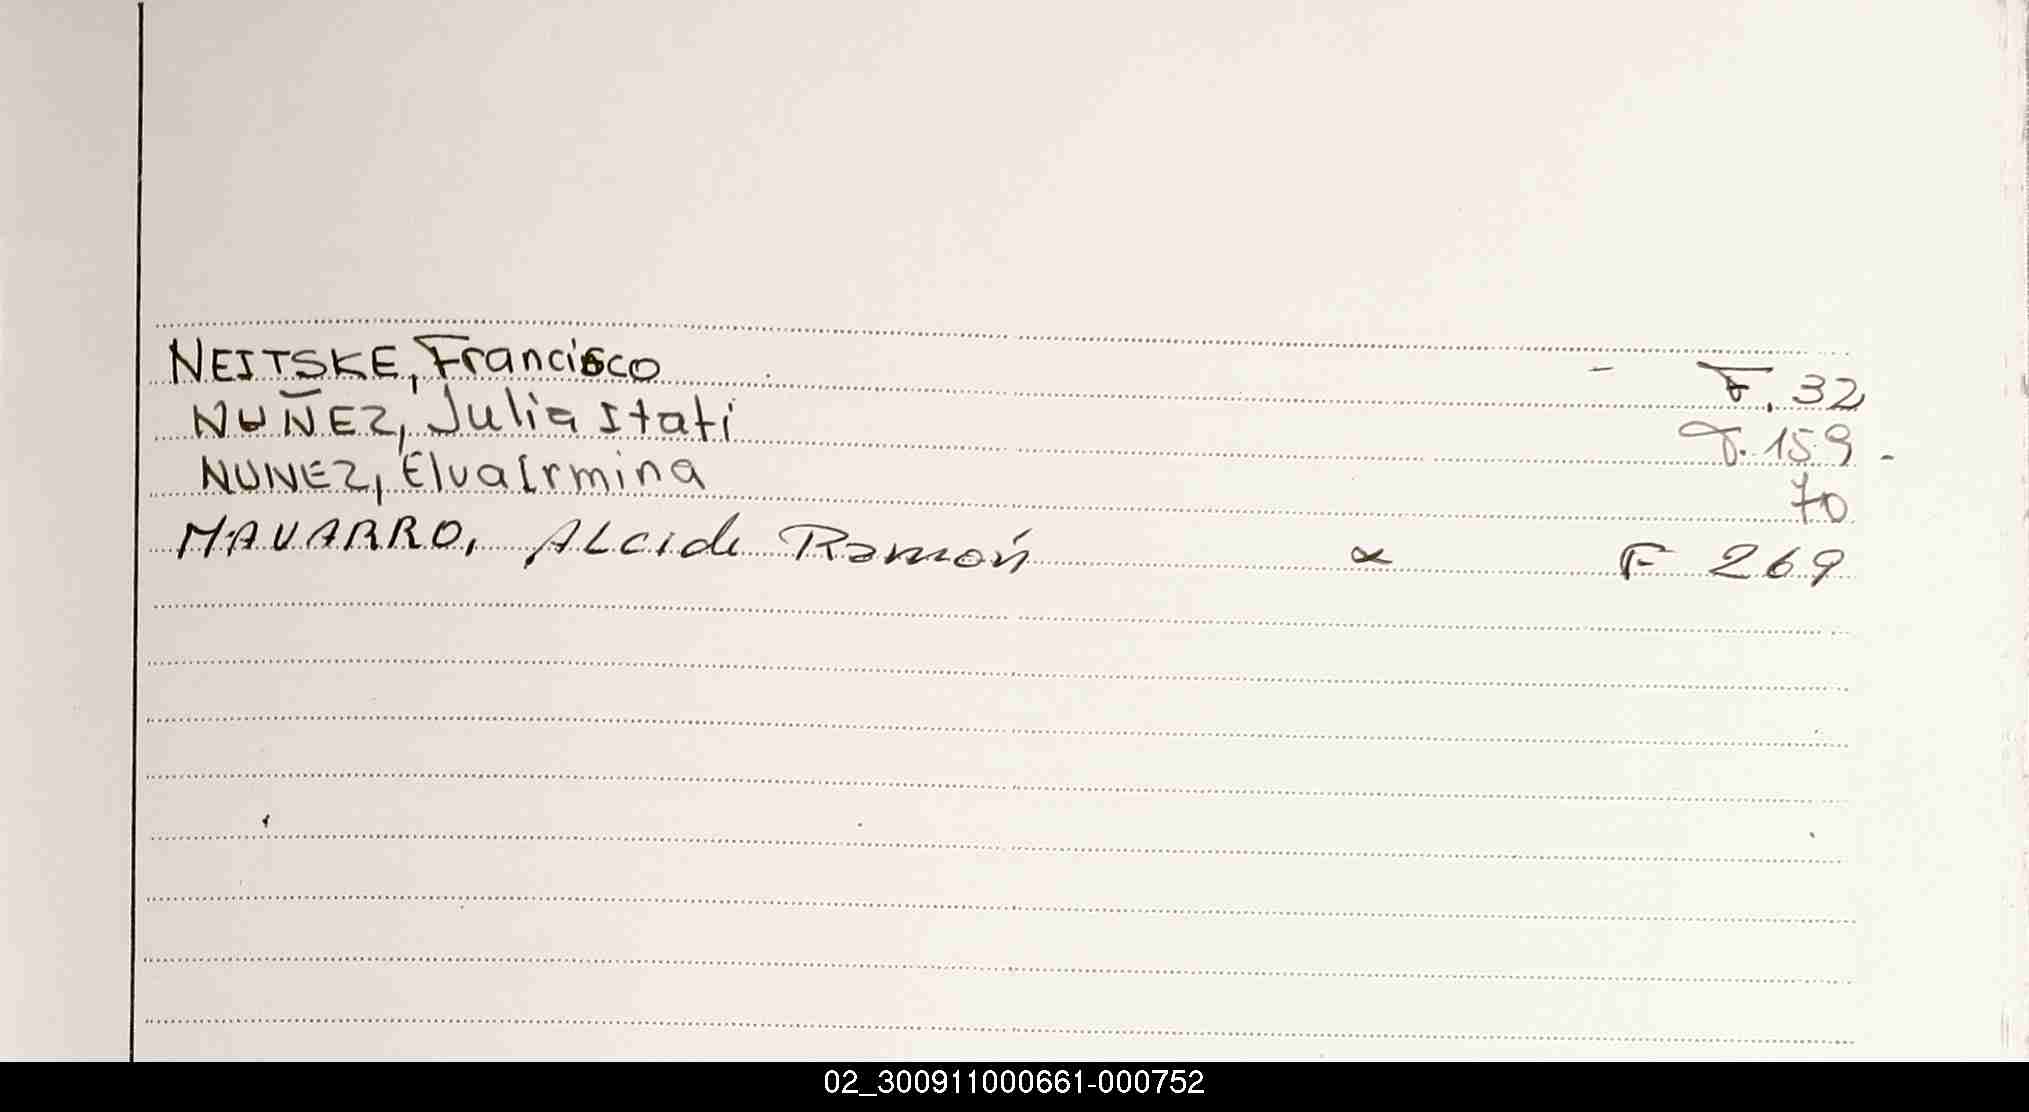 NEITSKE, Francisco - F. 32
NUÑEZ, Julia Itati F. 159 -
NUNEZ, Elva Irmina 70
NAVARRO, Alcide Ramón F 269
02_300911000661-000752